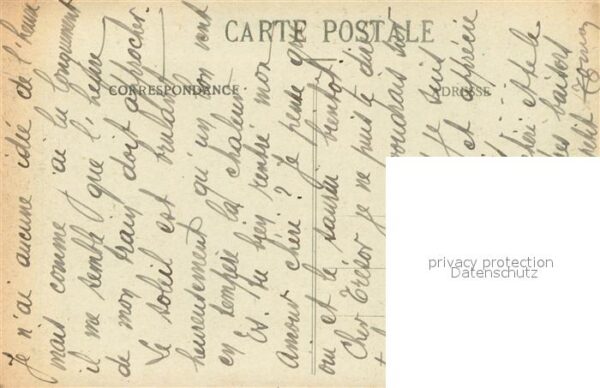 CARTE POSTALE
CORRESPONDANCE
ADRESSE
Je n'ai aucune idée de l'heure
mais comme j'ai lu longuement
il me semble que l'heure
de mon train doit approcher.
Le soleil est brulant
heureusement qu'un bon vent
en tempère la chaleur.
Es-tu bien rentré mon
amour chéri? Je pense que
oui et le saurai bientôt.
Cher Trésor je ne puis te dire
voudrais
je suis
et apprécie
chéri et te le
baisers
petit
privacy protection
Datenschutz